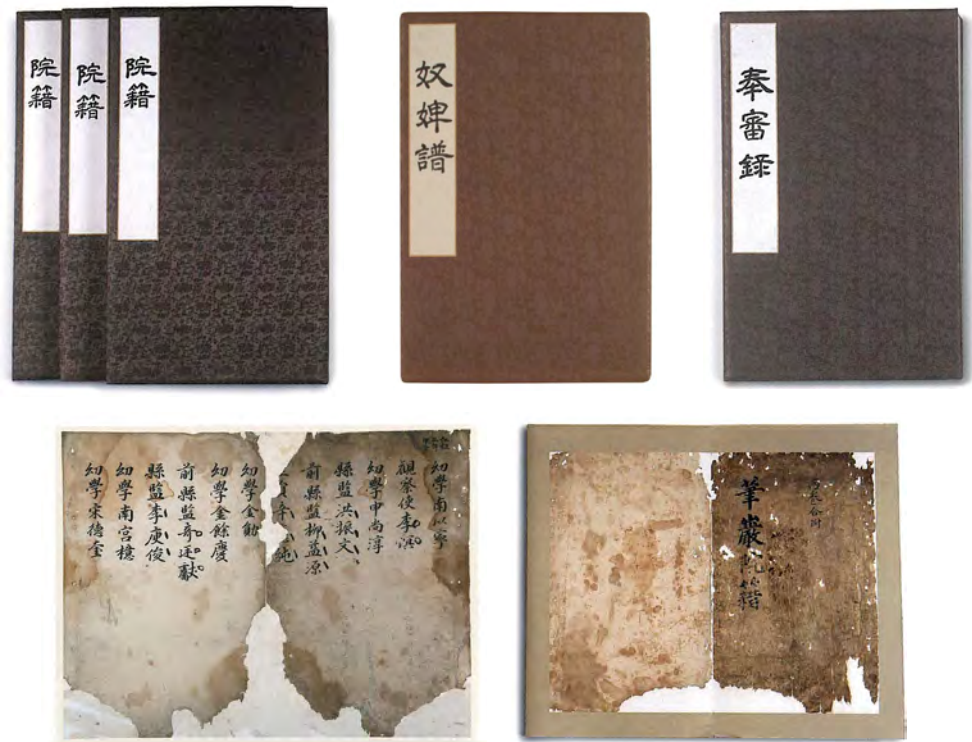 院籍
院籍
院籍
奴婢譜
奉審錄
幼學南以寧
觀察使李溟
幼學申尚淳
縣監洪振文
前縣監柳益源
純
幼學金勛
幼學金餘慶
前縣監奇廷獻
縣監李庚俊
幼學南宮檍
幼學宋德奎
筆巖院籍